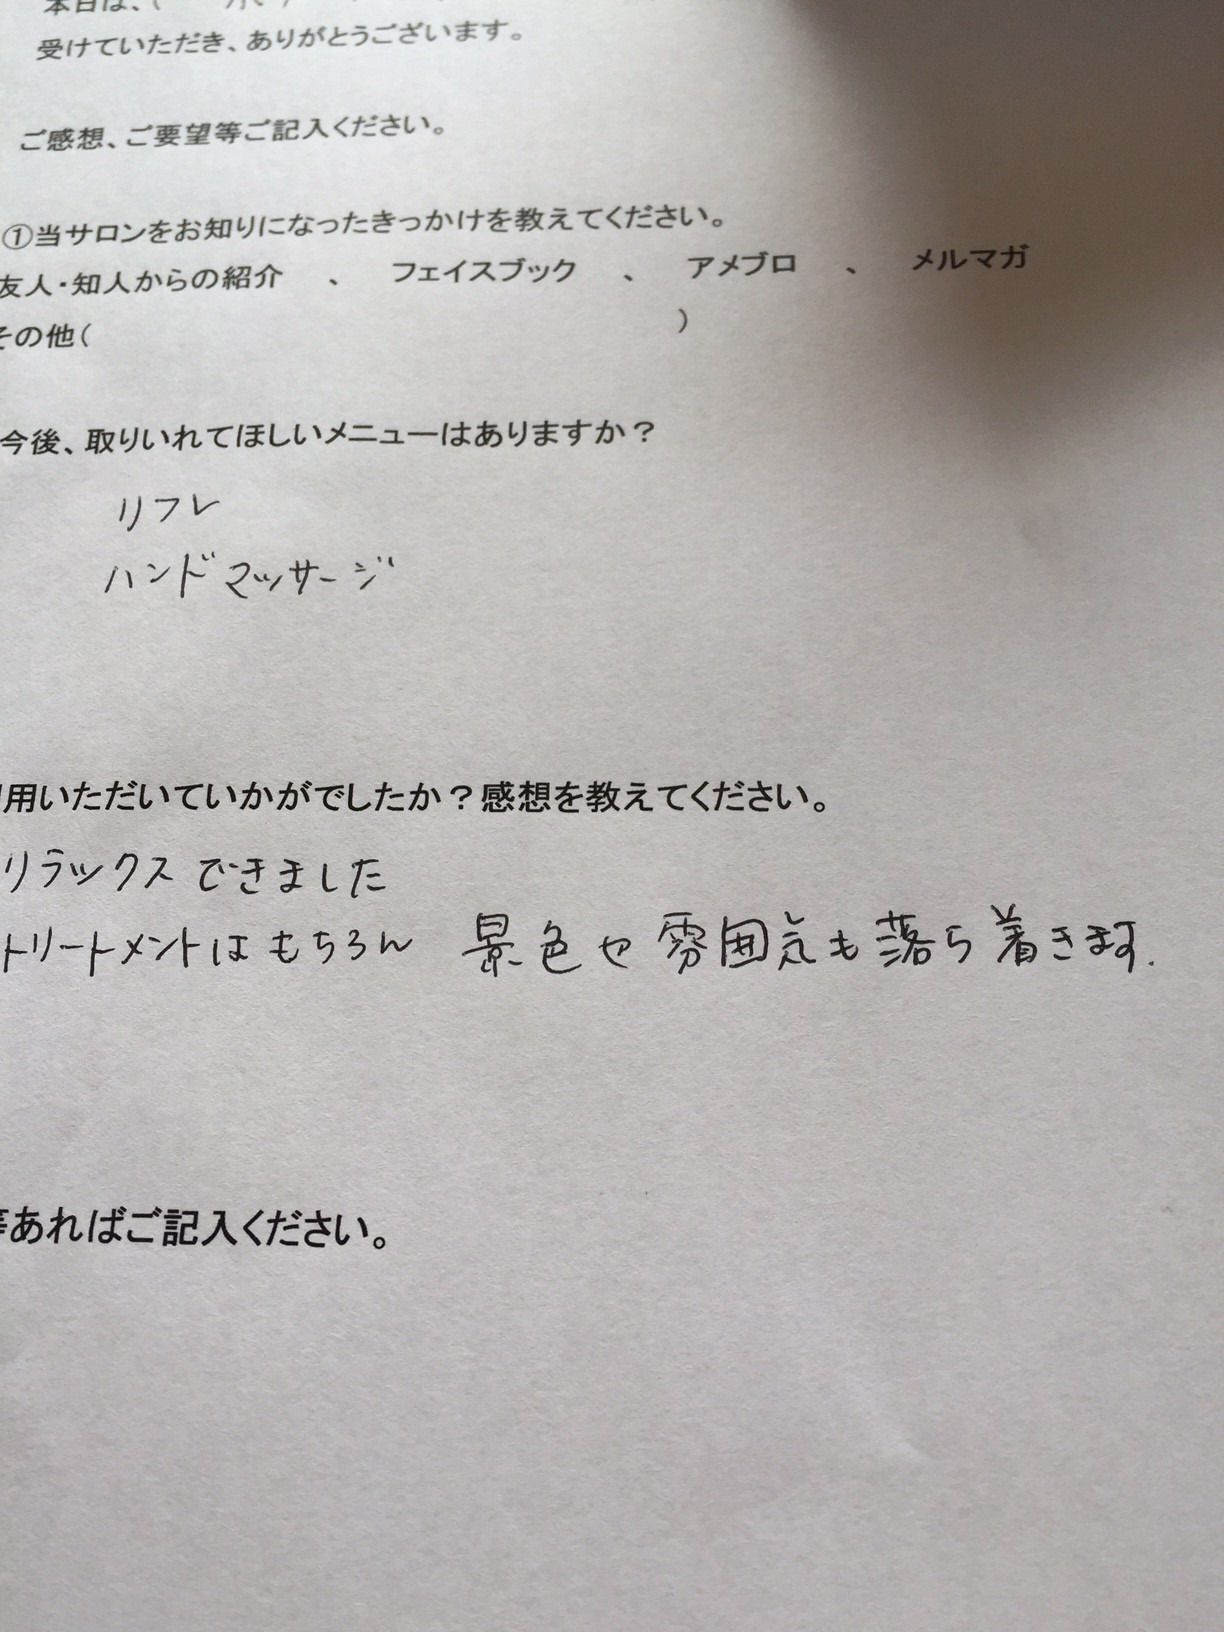 本日は、(
受けていただき、ありがとうございます。
ご感想、ご要望等ご記入ください。
①当サロンをお知りになったきっかけを教えてください。
友人・知人からの紹介 、 フェイスブック 、 アメブロ 、 メルマガ
その他( )
今後、取りいれてほしいメニューはありますか？
リフレ
ハンドマッサージ
用いただいていかがでしたか？感想を教えてください。
リラックスできました
トリートメントはもちろん 景色や雰囲気も落ち着きます.
等あればご記入ください。